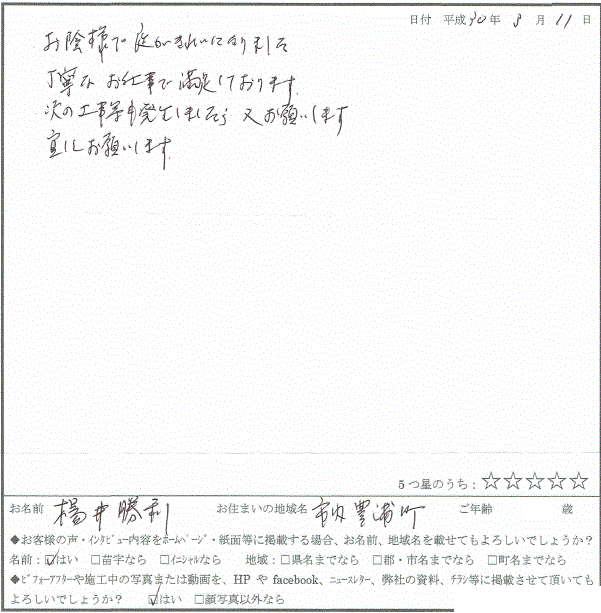 日付 平成30年 8月 11日
お陰様で庭がきれいになりました
丁寧なお仕事で満足しております。
次の工事等も発生しましたら 又お願いします
宜しくお願いします。
5つ星のうち：☆☆☆☆☆
お名前 楊井勝利 お住まいの地域名 市内豊浦町 ご年齢 歳
◆お客様の声・インタビュー内容をホームページ・紙面等に掲載する場合、お名前、地域名を載せてもよろしいでしょうか？
名前：☑はい □苗字なら □イニシャルなら 地域：□県名までなら □郡・市名までなら □町名までなら
◆ビフォーアフターや施工中の写真または動画を、HP や facebook、ニュースレター、弊社の資料、チラシ等に掲載させて頂いても
よろしいでしょうか？ ☑はい □顔写真以外なら